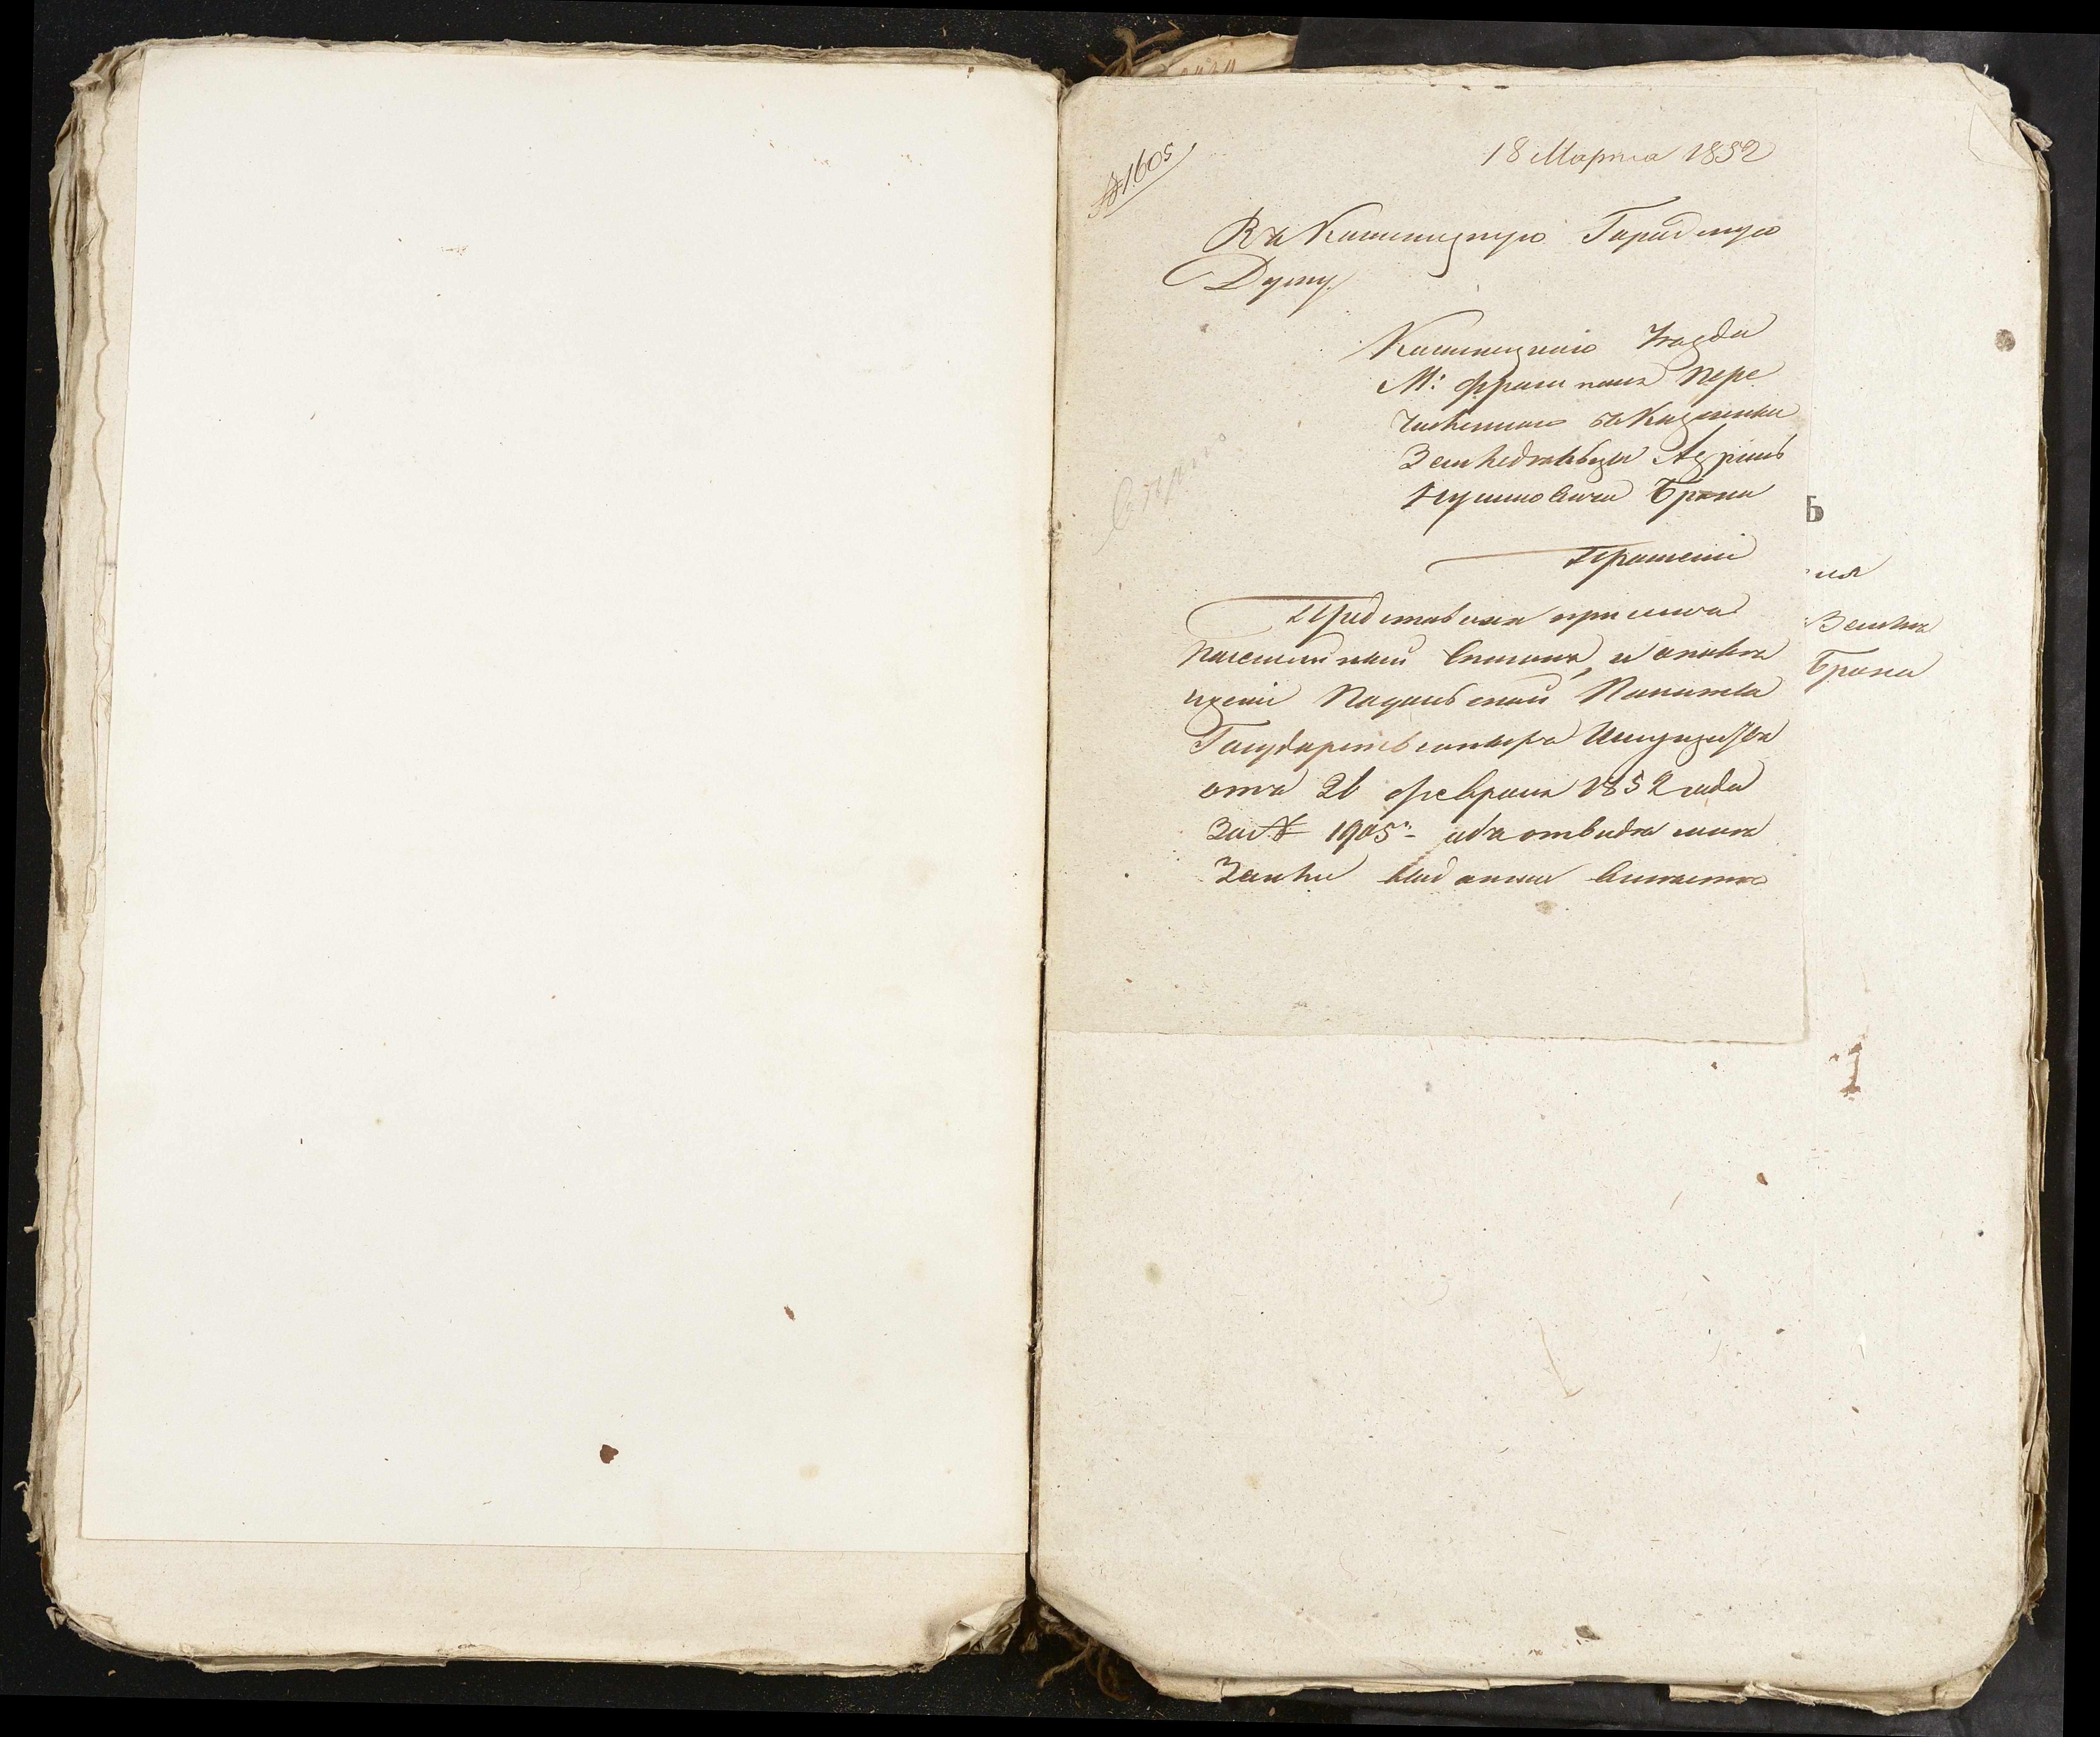 № 1605
18 Марта 1852
Въ Каменецкую Городскую
Думу
Каменецкаго Уезда
М: Фрампола Пере
численнаго въ Казенныи
Земледельцы Азриль
Брана
Прошеніе
Представляя при семъ
Посемейный Списокъ, и
Подольской Палаты
Государственныхъ Имуществъ
отъ 21 Февраля 1852 года
За № 1905 объ отводе мне
Земли
Б
ия
Земли
Брана